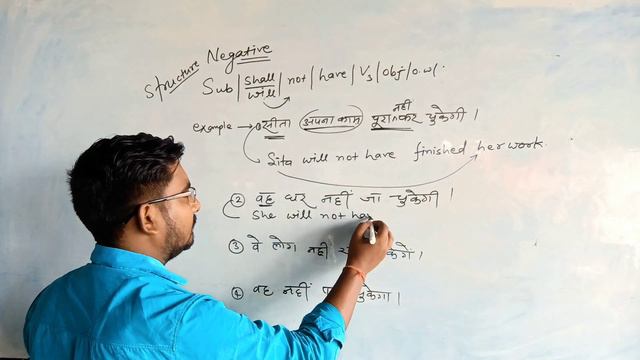 Structure Negative
Sub | shall/will | not | have | V3 | Obj | o.w/.
example → ① सीता अपना काम पूरा नहीं कर चुकेगी ।
Sita will not have finished her work.
② वह घर नहीं जा चुकेगी ।
She will not ha
③ वे लोग नहीं
④ वह नहीं चुकेगा ।